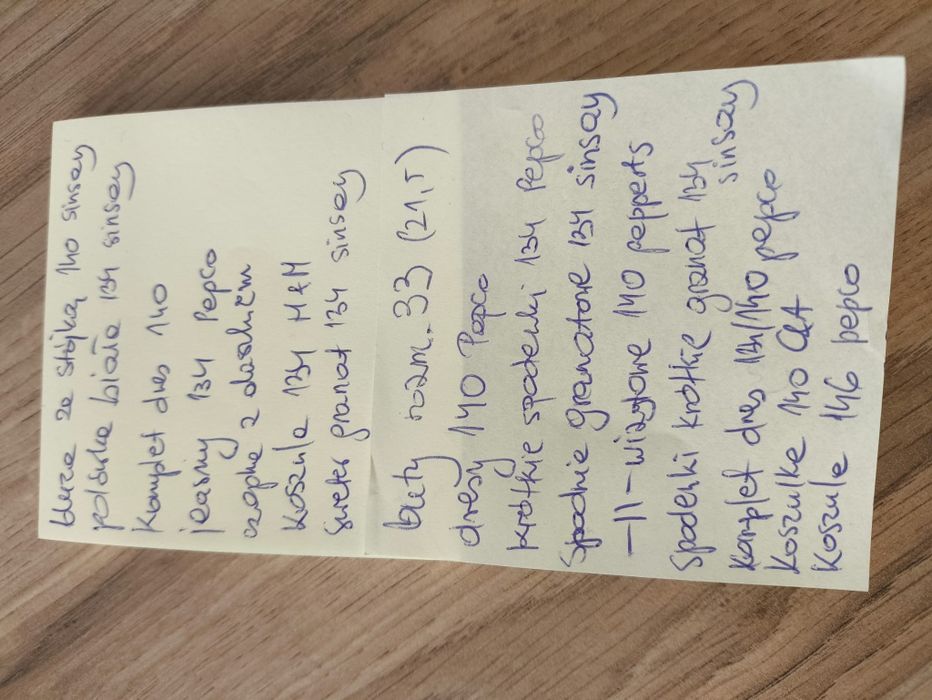 bluza ze stójką 140 sinsay
polówka biała 134 sinsay
Komplet dres 140
jeansy 134 Pepco
czapka z daszkiem
Koszula 134 H&M
Sweter granat 134 sinsay
buty rozm. 33 (21,5)
dresy 140 Pepco
krótkie spodenki 134 Pepco
Spodnie granatowe 134 sinsay
—II— wizytowe 140 pepperts
Spodenki krótkie granat 134 sinsay
Komplet dres 134/140 pepco
Koszulka 140 C&A
Koszula 146 pepco